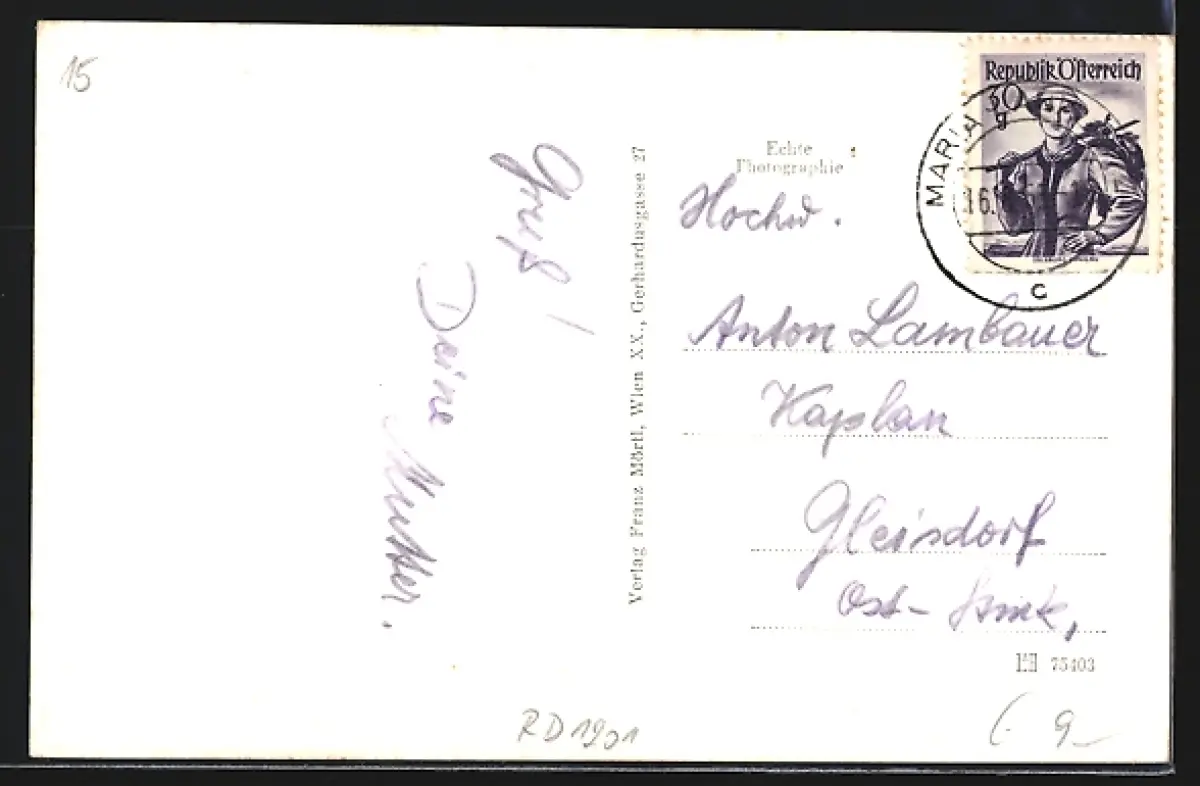 15
Gruß!
Deine Mutter.
Verlag Franz Mörtl, Wien XX., Gerhardusgasse 27
Echte
Photographie
Republik Österreich
30
g
MARIA
16.
C
Hochw.
Anton Lambauer
Kaplan
Gleisdorf
Ost-
75403
9